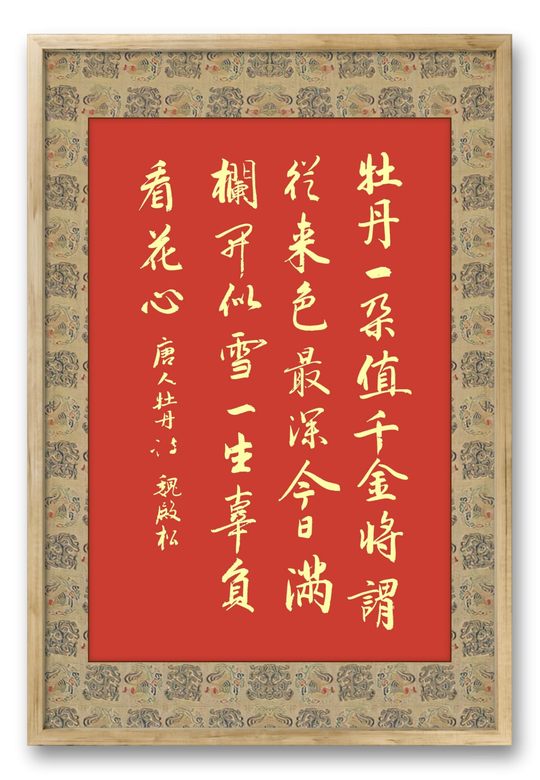 牡丹一朵值千金将謂
從来色最深今日满
欄开似雪一生辜負
看花心
唐人牡丹诗 魏殿松